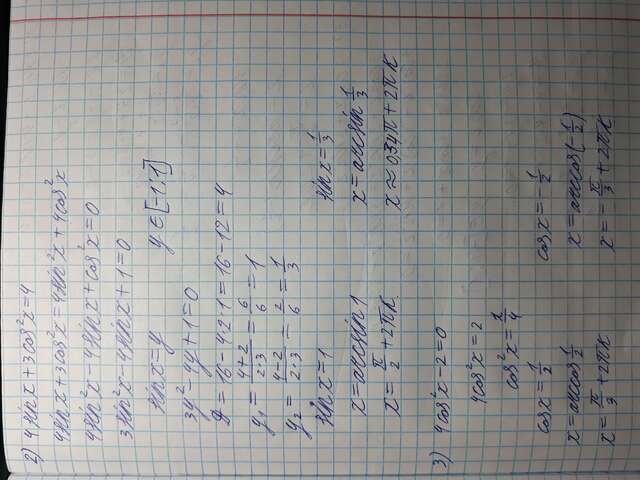 2) 4sin x + 3cos²x = 4
4sin x + 3cos²x = 4sin²x + 4cos²x
4sin²x - 4sin x + cos²x = 0
3sin²x - 4sin x + 1 = 0
sin x = y    y ∈ [-1; 1]
3y² - 4y + 1 = 0
D = 16 - 4·3·1 = 16 - 12 = 4
y₁ = (4+2)/(2·3) = 6/6 = 1
y₂ = (4-2)/(2·3) = 2/6 = 1/3
sin x = 1    sin x = 1/3
x = arcsin 1    x = arcsin 1/3
x = π/2 + 2πk    x ≈ 0,34π + 2πk
3) 4cos²x - 2 = 0
4cos²x = 2
cos²x = 2/4
cos x = 1/2    cos x = -1/2
x = arccos 1/2    x = arccos(-1/2)
x = π/3 + 2πk    x = -π/3 + 2πk